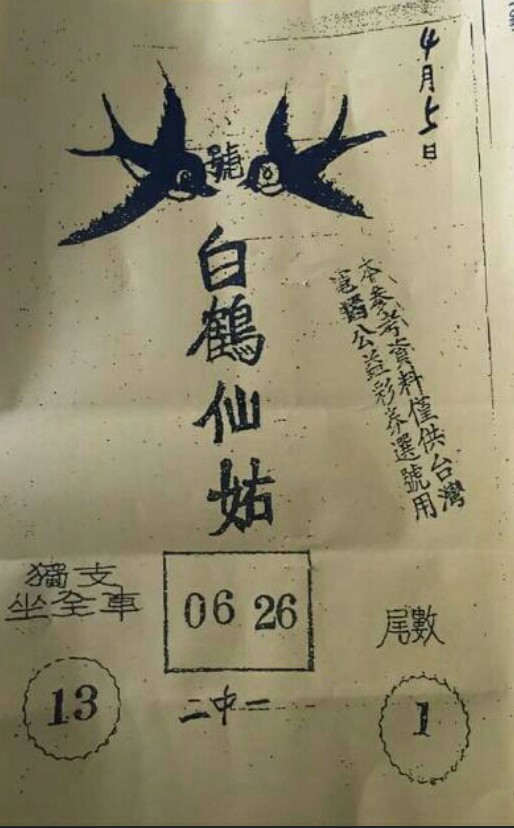 4月5日
號
白鶴仙姑
本參考資料僅供台灣
電腦公益彩券選號用
獨支
坐全車
13
06 26
二中一
尾數
1